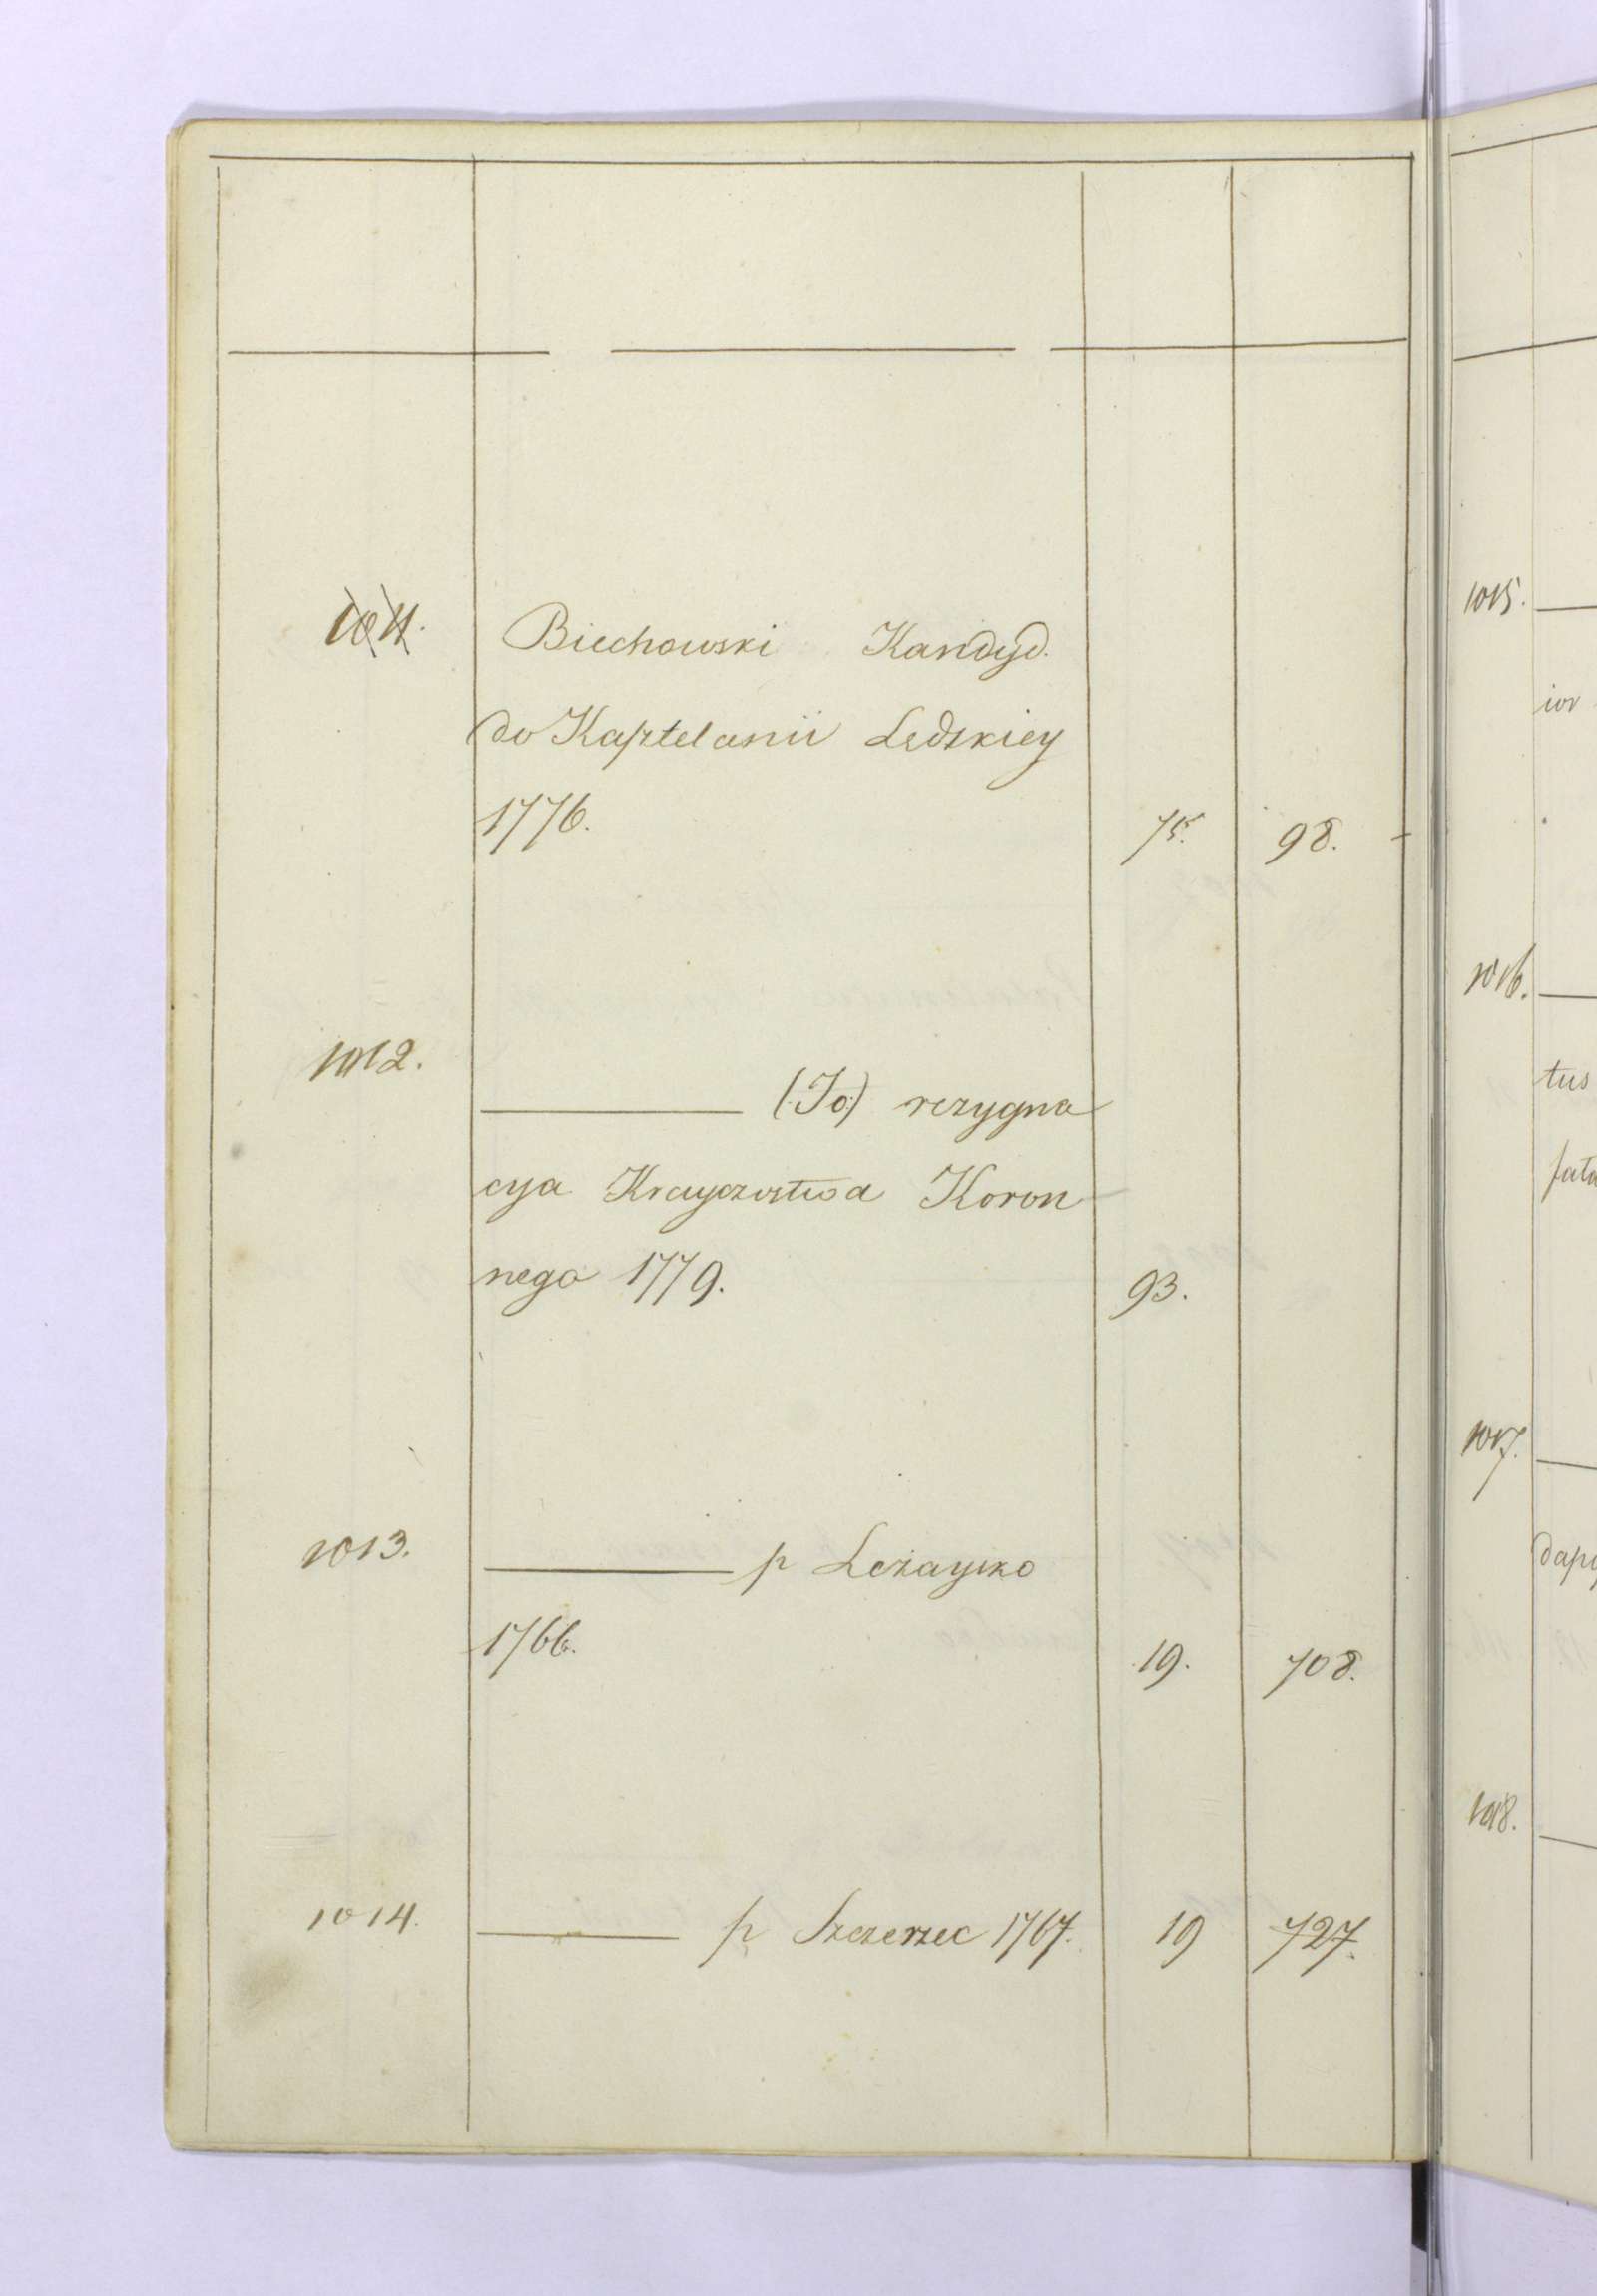 1011. Biechowski Kandyd.
do Kasztelanii Lędzkiey
1776. 75. 98.
1012. (:Jo:) rezygna
cya Krayczostwa Koron
nego 1779. 93.
1013. p Leżaysko
1766. 19. 708.
1014. p Szczerzec 1767. 19 727.
1015.
ior
1016.
tus
fata
1017.
dapi
1018.